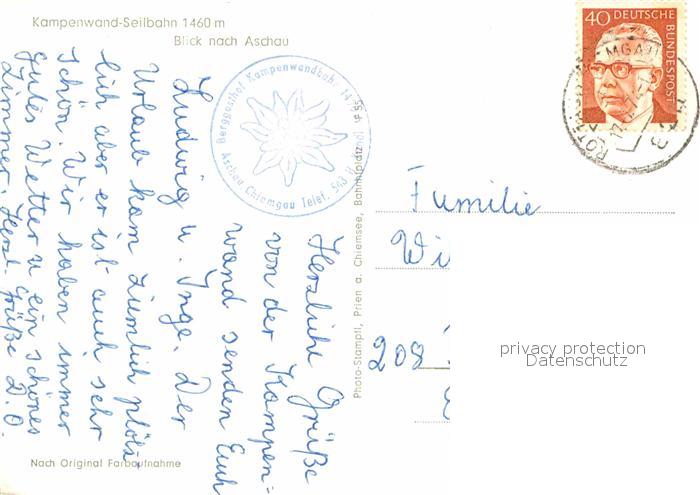 Kampenwand-Seilbahn 1460 m
Blick nach Aschau
40 DEUTSCHE
BUNDESPOST
Berggasthof Kampenwandbahn
Aschau Chiemgau Telef. 563
Herzliche Grüße
von der Kampen-
wand senden Euch
Ludwig u. Inge. Der
Urlaub kam ziemlich plötz-
lich aber er ist auch sehr
schön. Wir haben immer
gutes Wetter u ein schönes
Zimmer. Herzl. Grüße D. O.
Photo-Stampfl, Prien a. Chiemsee, Bahnhofplatz
Familie
Wi
208
privacy protection
Datenschutz
Nach Original Farbaufnahme